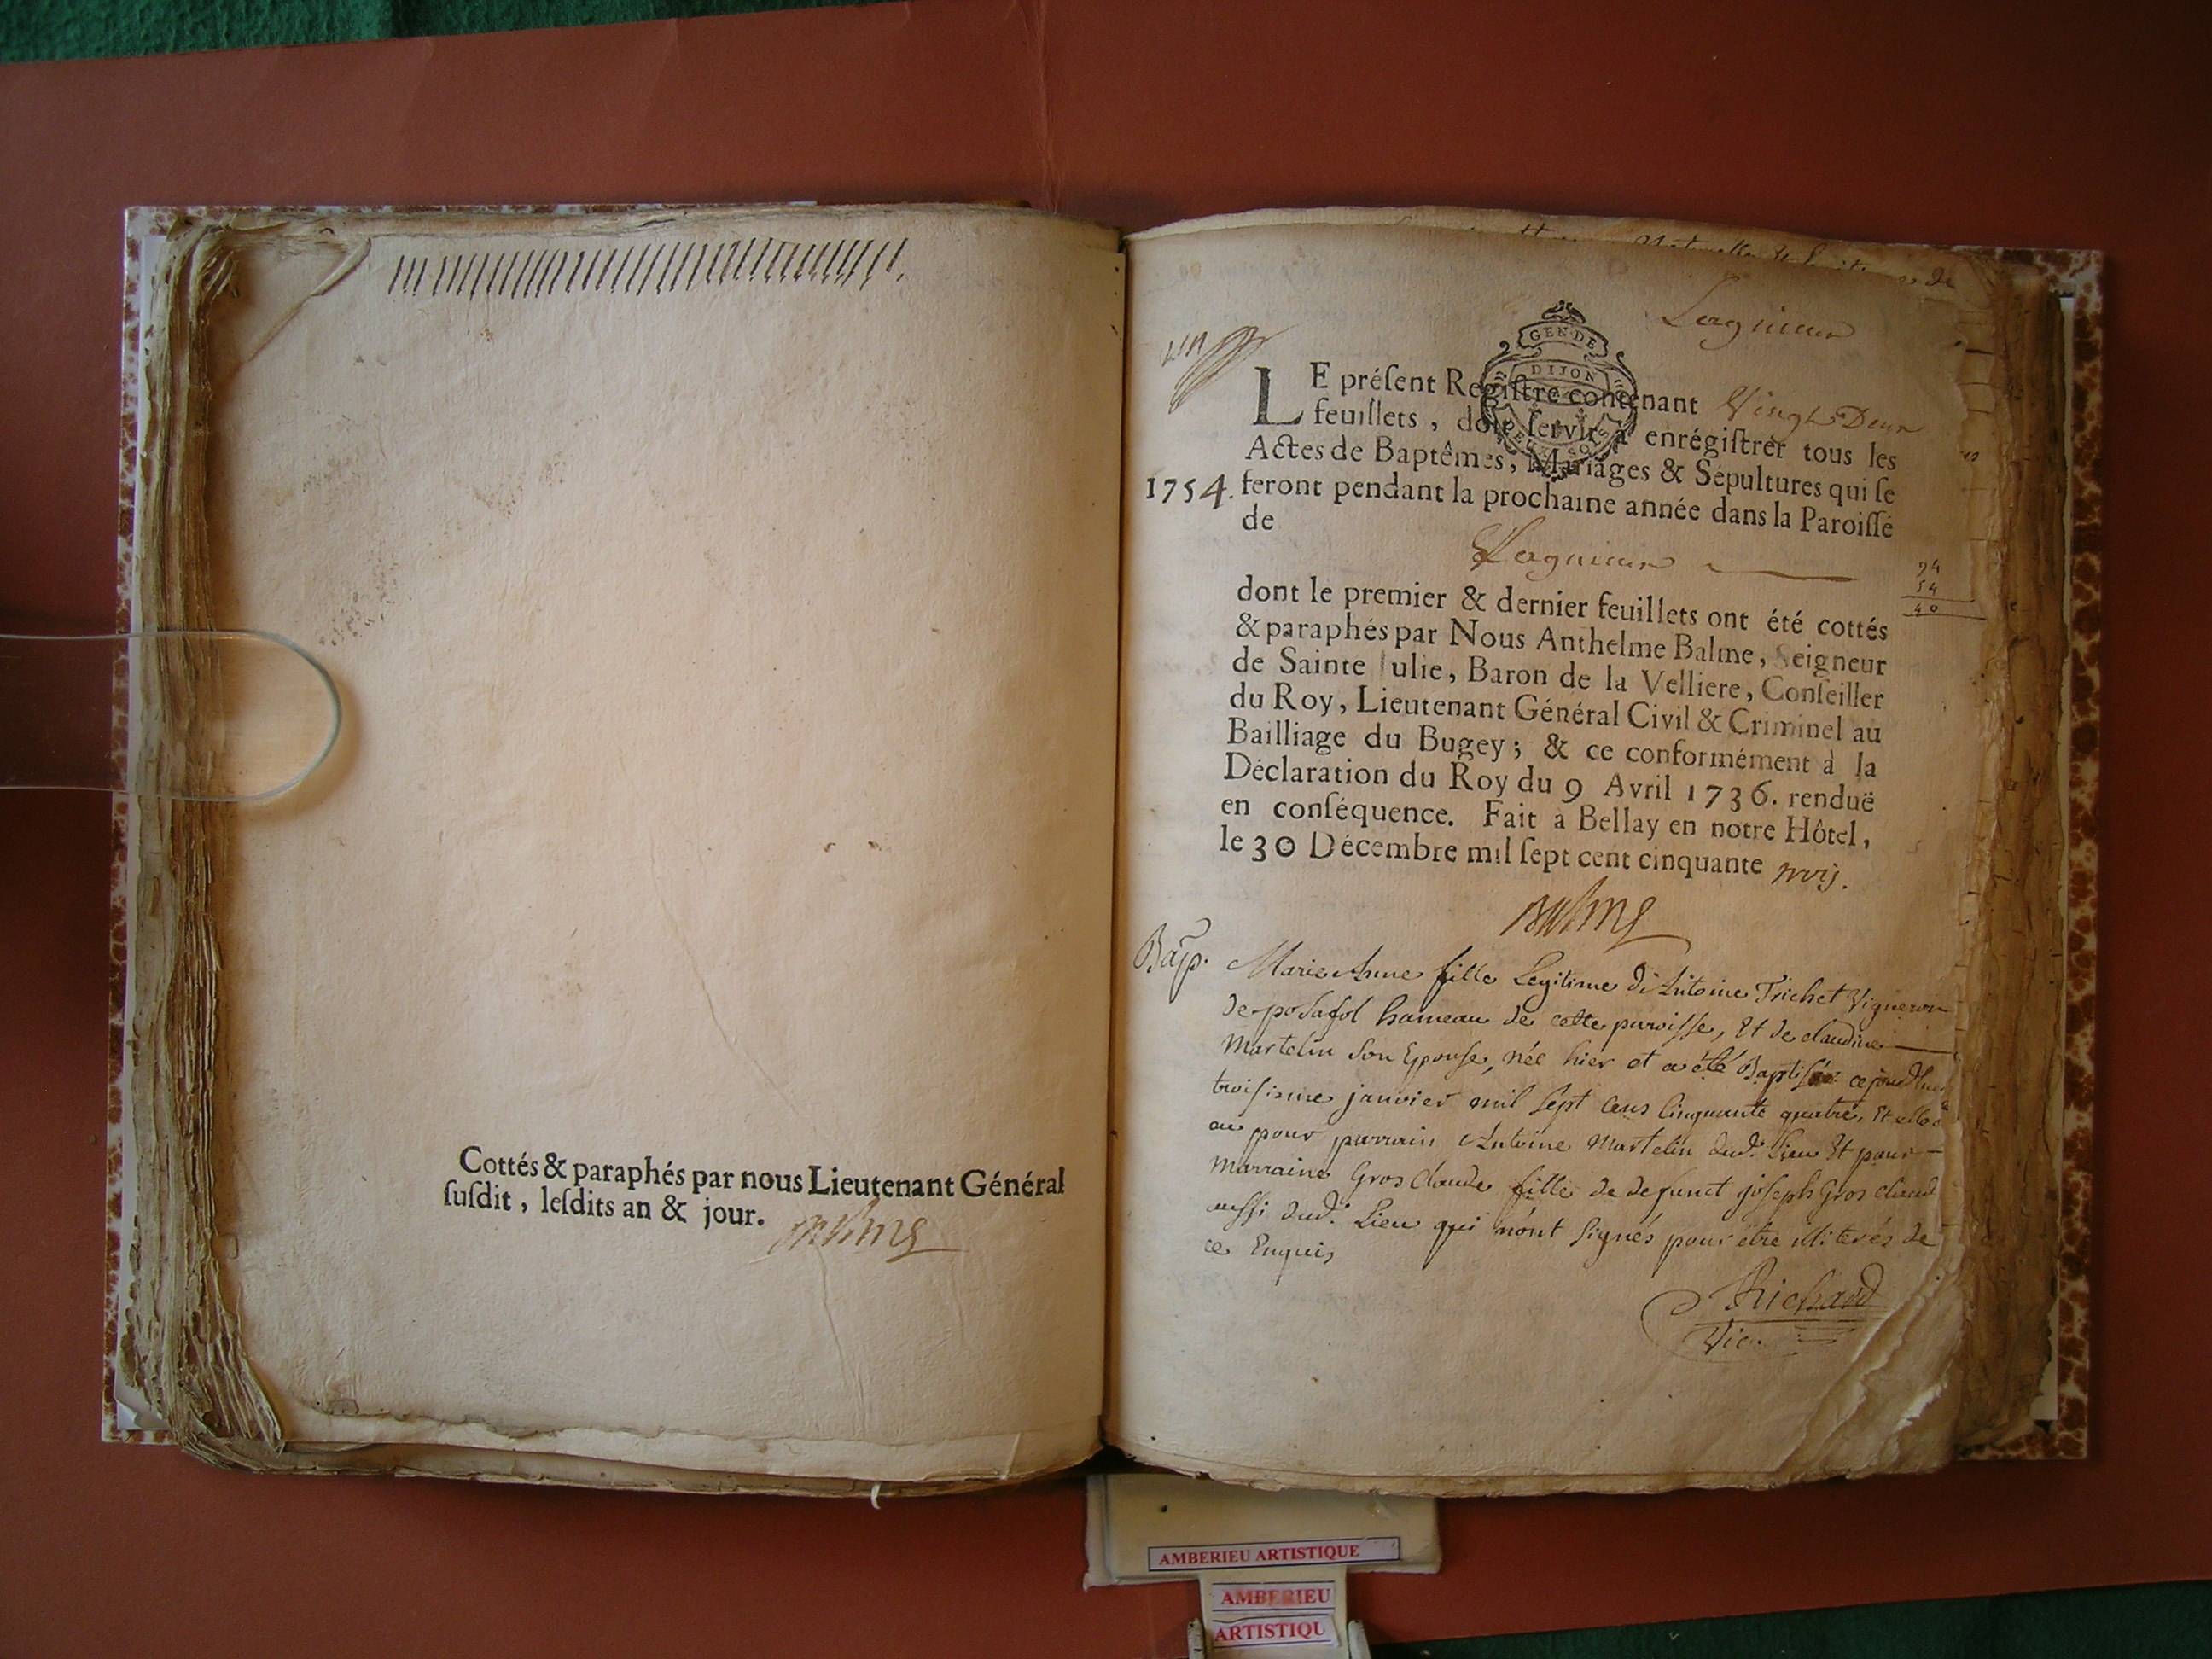 Cottés & paraphés par nous Lieutenant Général
ſuſdit, leſdits an & jour.
Balme
Lagnieu
un
GEN·DE
DIJON
LE préſent Regiſtre contenant Vingt Deux
feuillets, doit ſervir à enrégiſtrer tous les
Actes de Baptêmes, Mariages & Sépultures qui ſe
1754. feront pendant la prochaine année dans la Paroiſſe
de
Lagnieu
94
54
40
dont le premier & dernier feuillets ont été cottés
& paraphés par Nous Anthelme Balme, Seigneur
de Sainte Julie, Baron de la Velliere, Conſeiller
du Roy, Lieutenant Général Civil & Criminel au
Bailliage du Bugey; & ce conformément à la
Déclaration du Roy du 9 Avril 1736. renduë
en conſéquence. Fait à Bellay en notre Hôtel,
le 30 Décembre mil ſept cent cinquante trois.
Balme
Bap. Marie Anne fille Legitime d'Antoine Trichet Vigneron
de posafol hameau de cette paroisse, Et de claudine
Martelin son Epouse, née hier et a été Baptisée cejourdhuy
troisieme janvier mil sept cens Cinquante quatre, Et elle a
eu pour parrain Antoine Martelin dud. Lieu Et pour
Marraine Gros Claude fille de defunct joseph Gros claud
aussi dud. Lieu qui n'ont signés pour être illiterés de
ce Enquis
Richard
Vic.
AMBERIEU ARTISTIQUE
AMBERIEU
ARTISTIQU